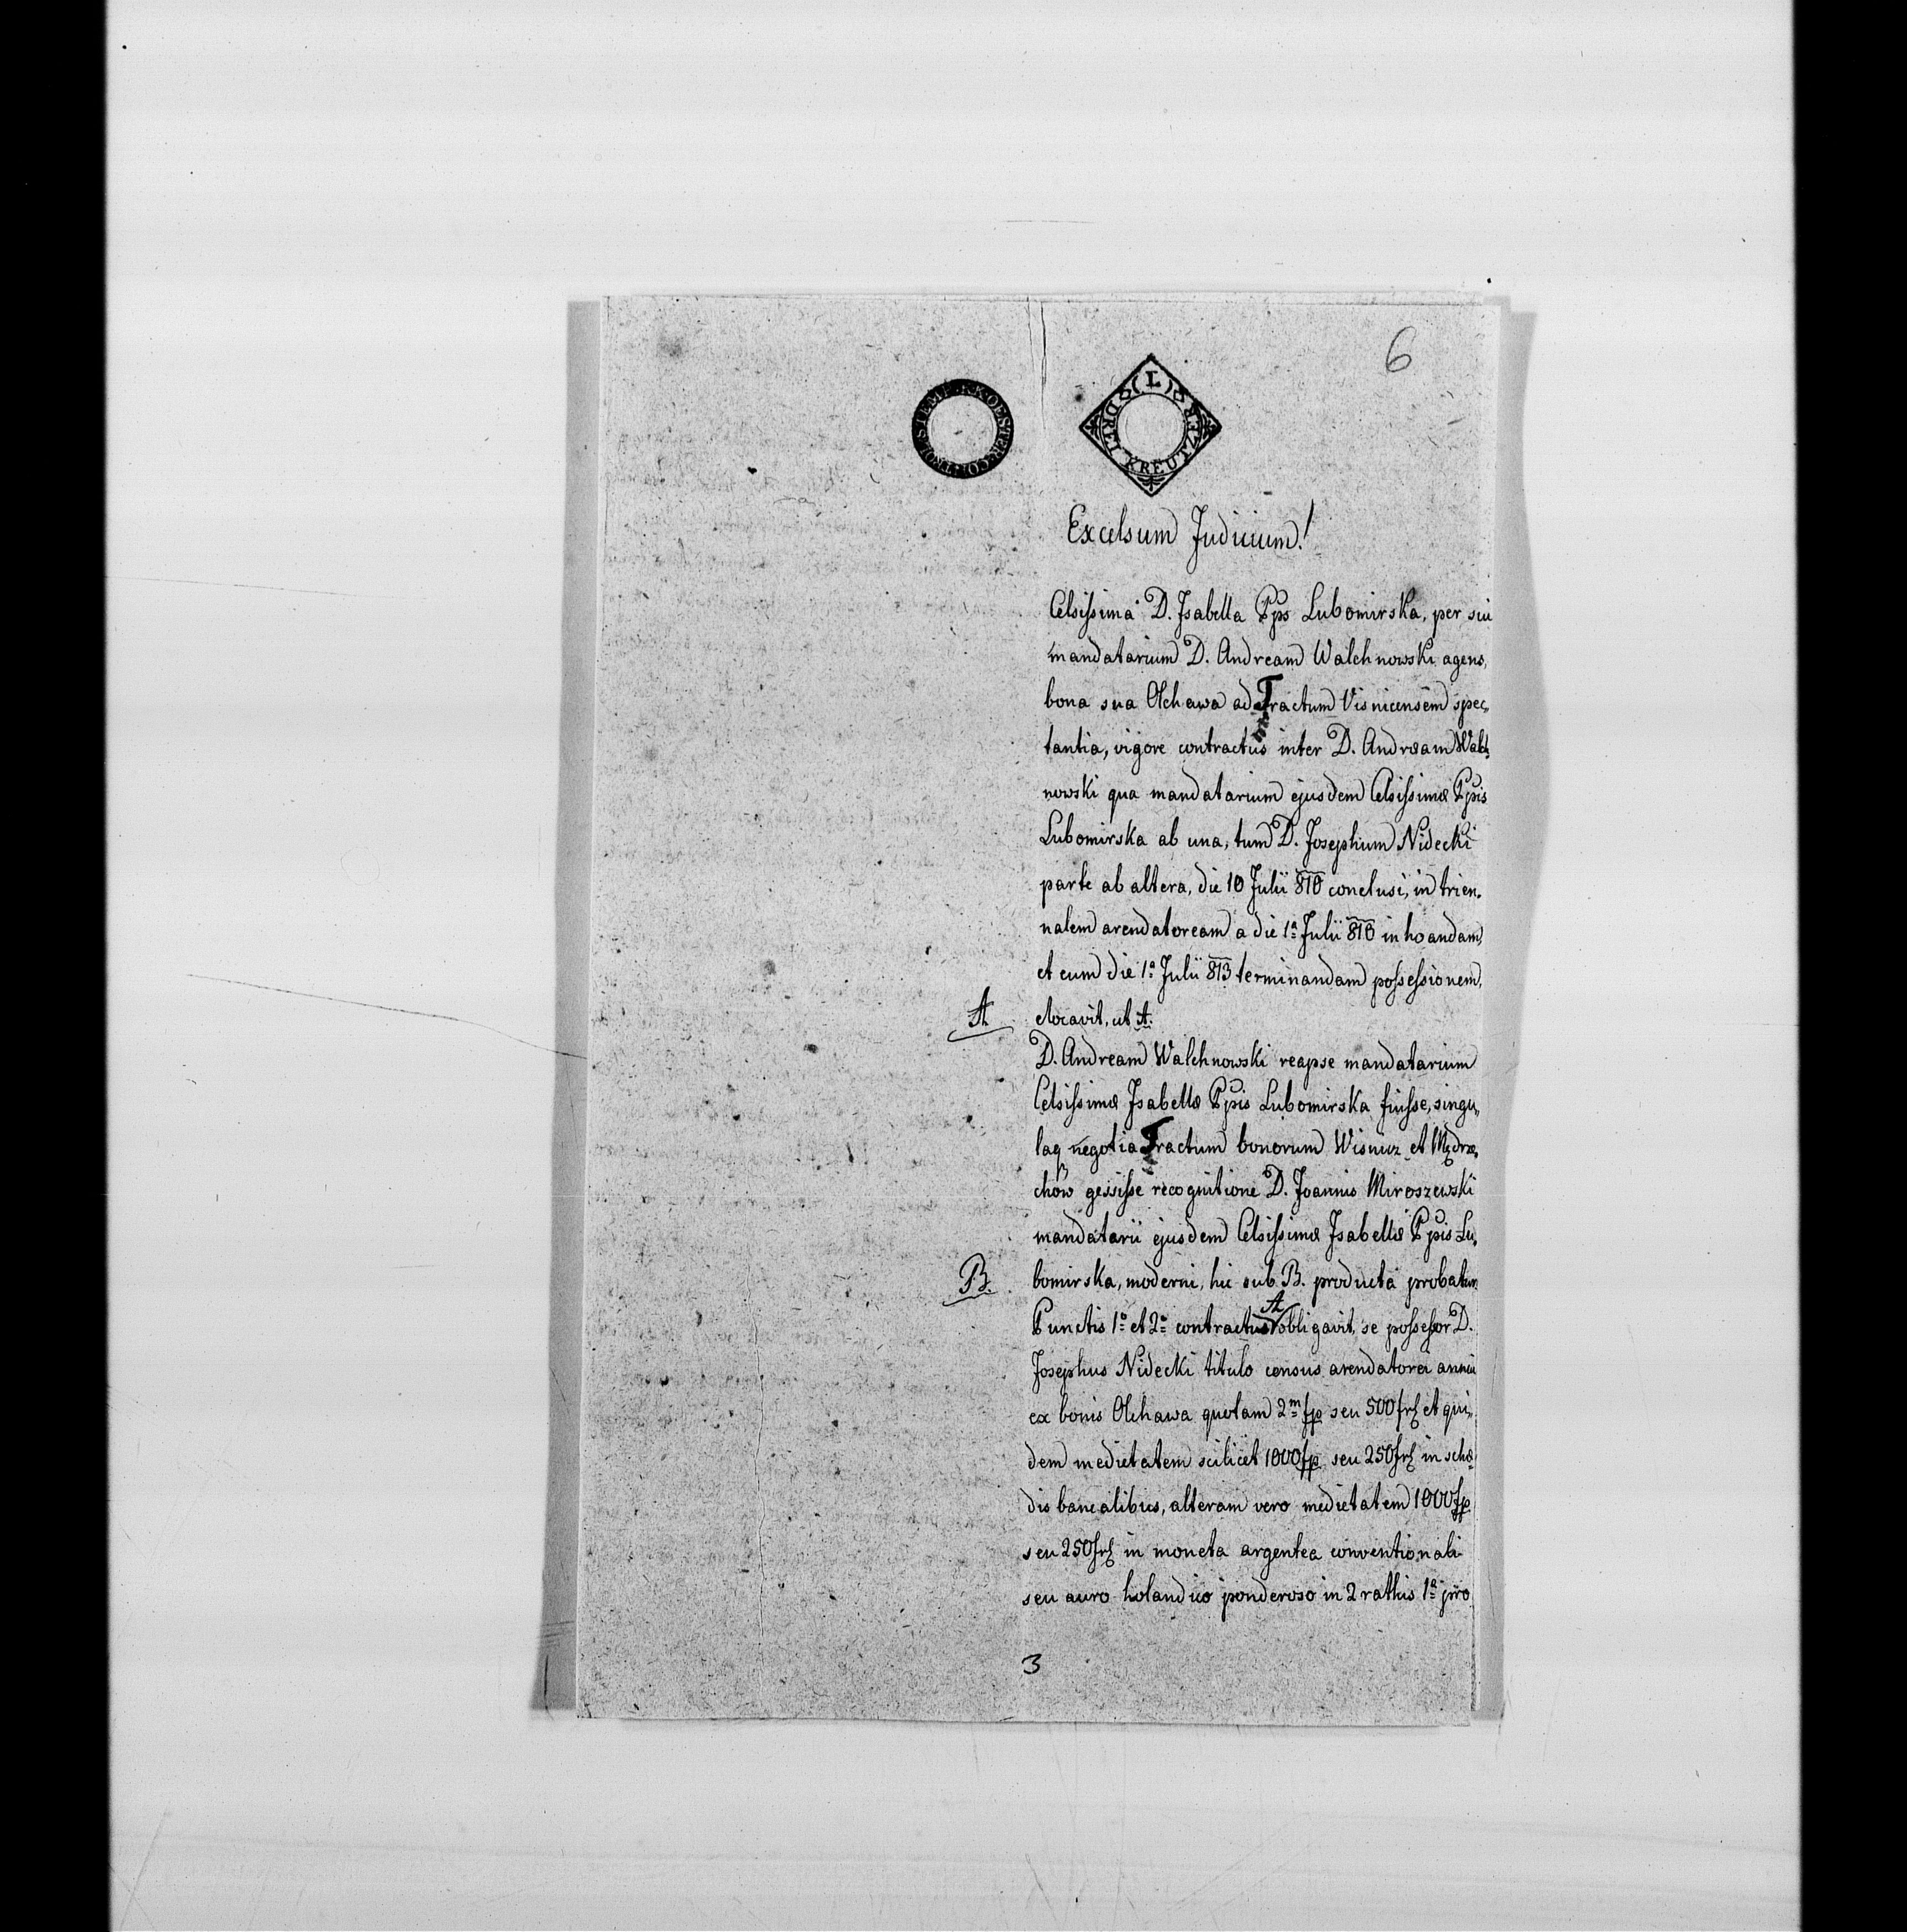 6
K.K. OESTER. CONTROL STEMP
(L) DREI KREUTZER
Excelsum Judicium!
Celsissima D. Isabella Pps Lubomirska, per sui
mandatarium D. Andream Walchnowski agens,
bona sua Olchawa ad Tractum Visnicensem spec„
tantia, vigore contractus inter D. Andream Walch„
nowski qua mandatarium ejusdem Celsissimæ Ppis
Lubomirska ab una, tum D. Josephum Nidecki
parte ab altera, die 10 Julii 810 conclusi, in trien„
nalem arendatoream a die 1ª Julii 810 inhoandam,
et cum die 1ª Julii 813 terminandam possessionem,
A elocavit, ut A.
D. Andream Walchnowski reapse mandatarium
Celsissimæ Isabellæ Ppis Lubomirska fuisse, singu„
laq negotia Tractum bonorum Wisnicz et Mędrze„
chów gessisse recognitione D. Joannis Miroszewski
mandatarii ejusdem Celsissimæ Isabellæ Ppis Lu„
B. bomirska, moderni, hic sub B. producta probatur.
Punctis 1º et 2º contractus A obligavit, se possessor D.
Josephus Nidecki titulo census arendatorei annui
ex bonis Olchawa quotam 2m fp seu 500 fr et qui„
dem medietatem scilicet 1000 fp seu 250 fr in sche„
dis bancalibus, alteram vero medietatem 1000 fp
seu 250 fr in moneta argentea conventionali
seu auro holandico ponderoso in 2 rathis 1ª pro
3